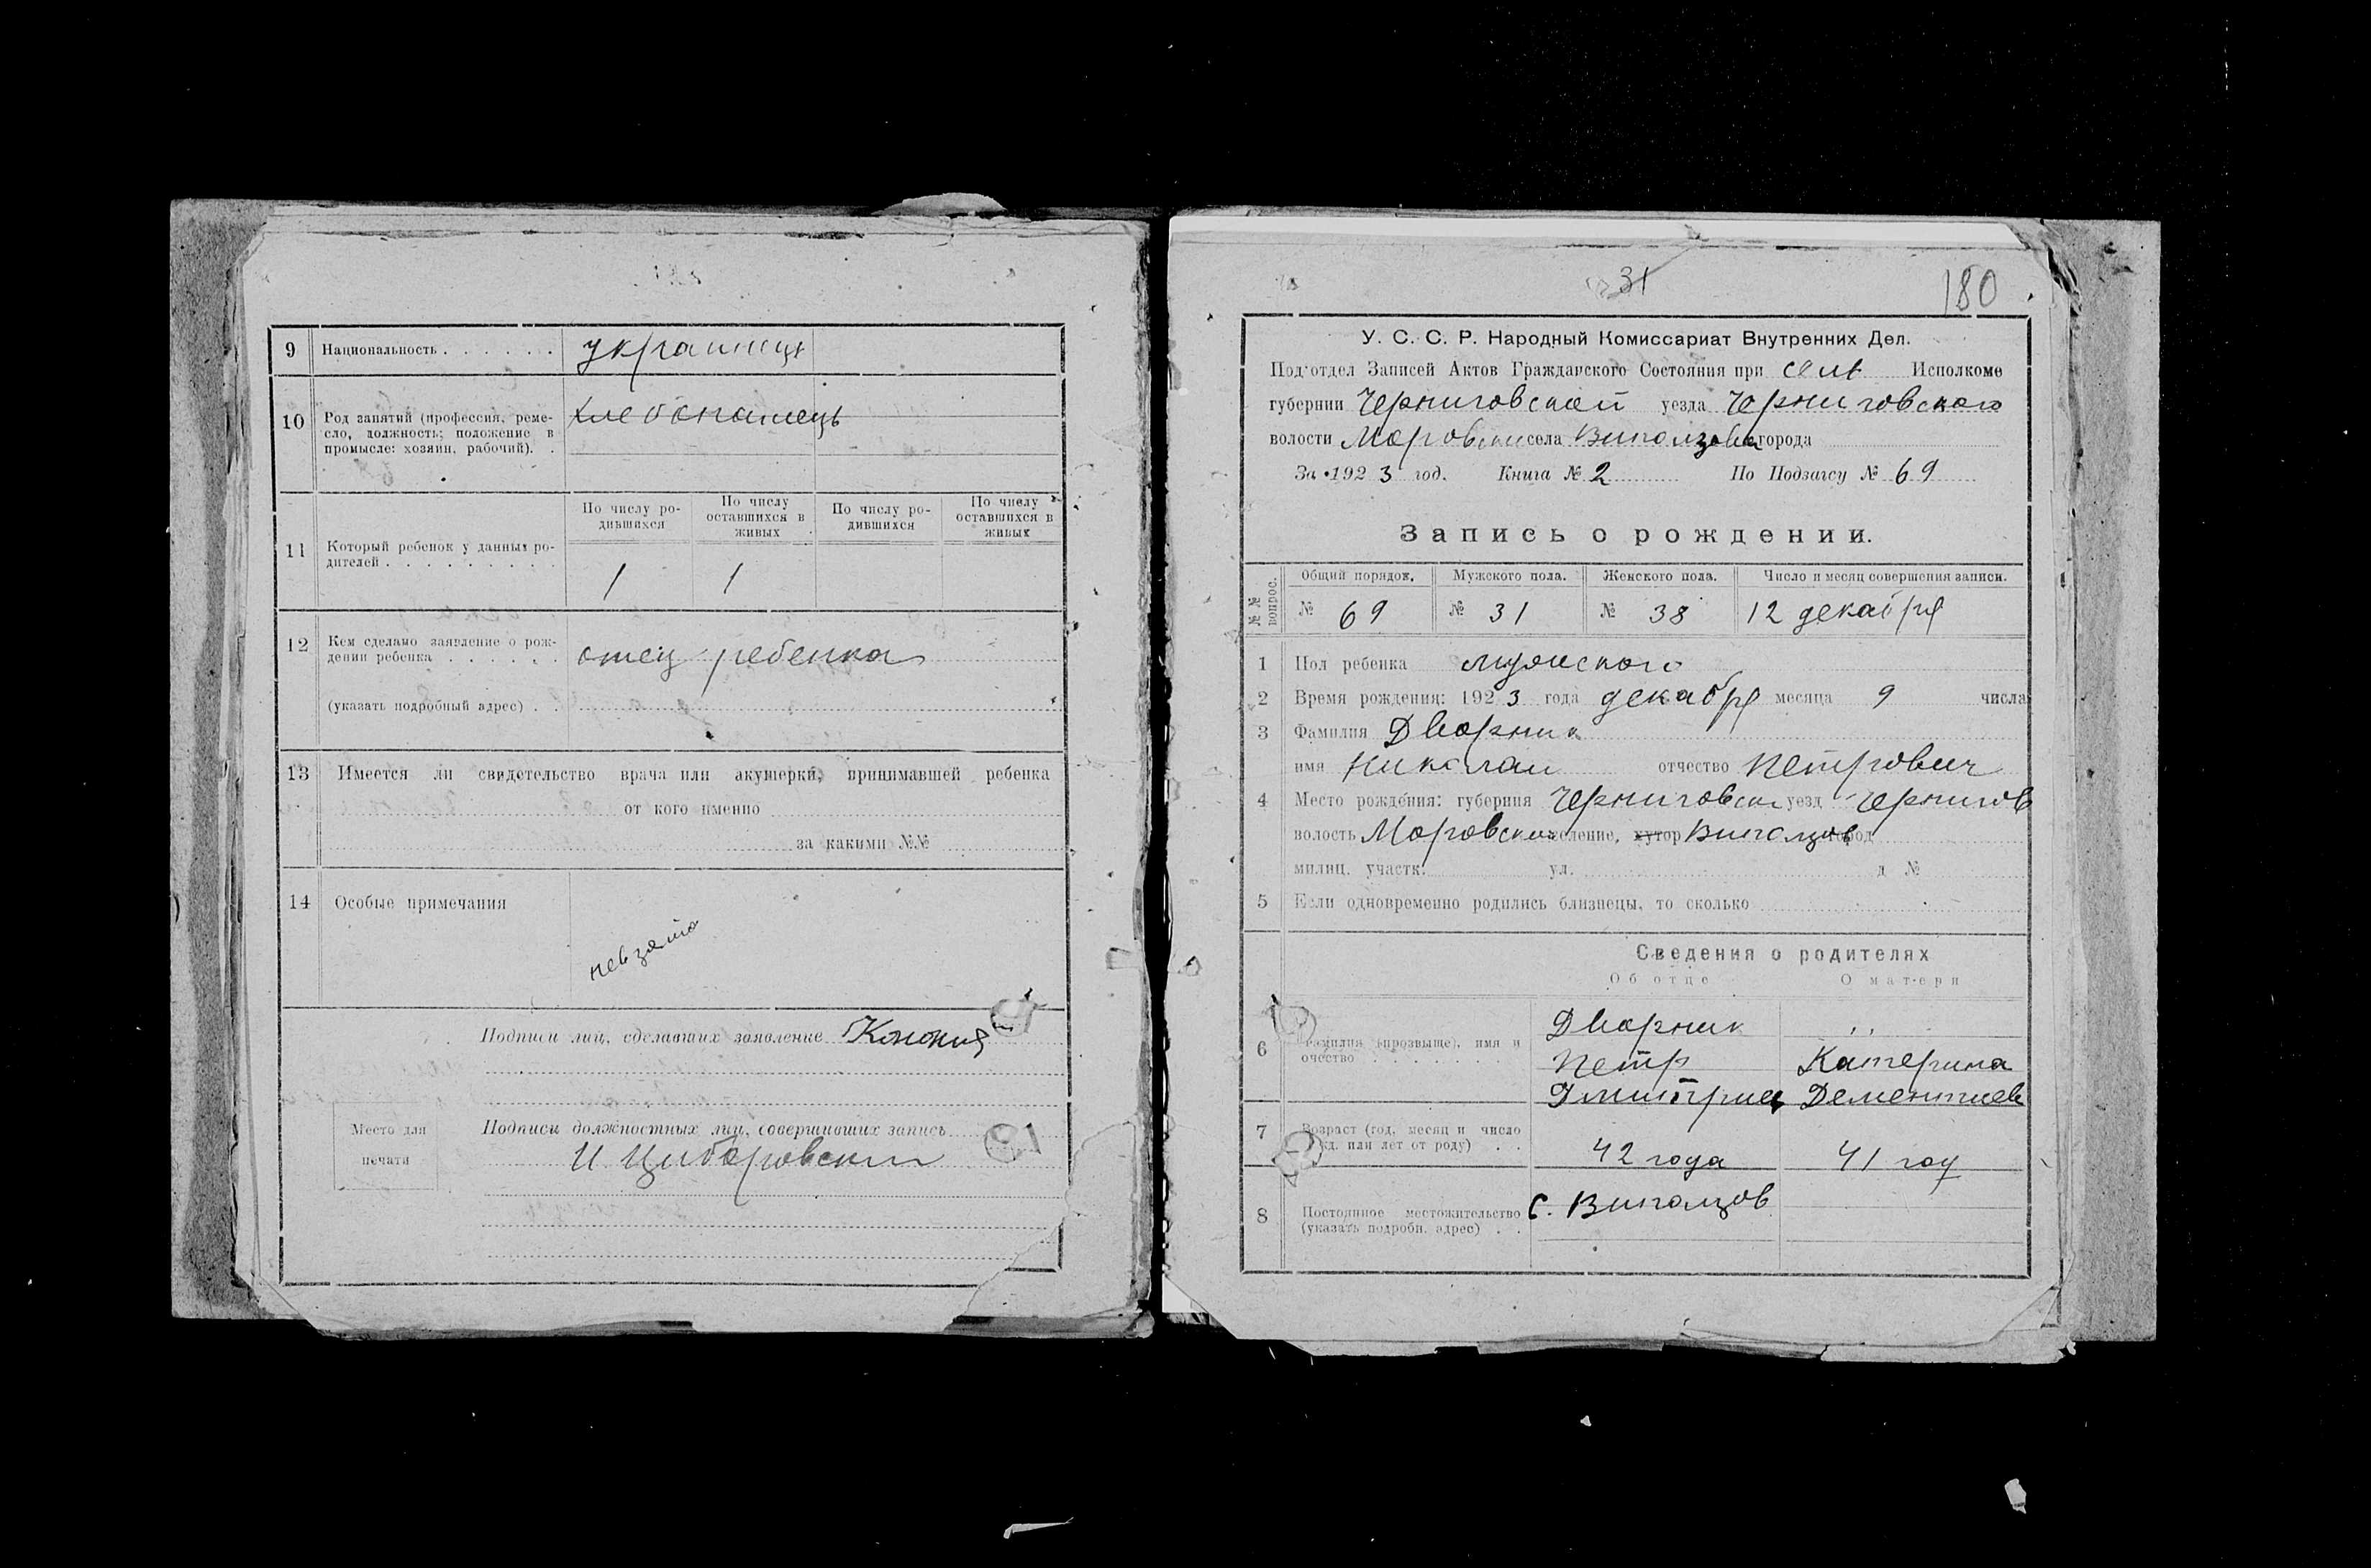 9 Национальность . . . . . . украинець
10 Род занятий (профессия, ремесло, должность; положение в промысле: хозяин, рабочий). . хлебопашець
По числу родившихся По числу оставшихся в живых По числу родившихся По числу оставшихся в живых
11 Который ребенок у данных родителей . . . . . . . . . 1 1
12 Кем сделано заявление о рождении ребенка . . . . . . отец ребенка
(указать подробный адрес) . .
13 Имеется ли свидетельство врача или акушерки, принимавшей ребенка
от кого именно
за какими №№
14 Особые примечания
невзято
Подписи лиц, сделавших заявление
Место для печати
Подписи должностных лиц, совершивших запись
И Циборовский
31
180
У. С. С. Р. Народный Комиссариат Внутренних Дел.
Под'отдел Записей Актов Гражданского Состояния при сель Исполкоме
губернии Черниговской уезда Черниговского
волости Моровской села города
За 1923 год. Книга № 2 По Подзагсу № 69
Запись о рождении.
№№ вопрос. Общий порядок. Мужского пола. Женского пола. Число и месяц совершения записи.
№ 69 № 31 № 38 12 декабря
1 Пол ребенка мужского
2 Время рождения: 1923 года декабря месяца 9 числа
3 Фамилия Дворник
имя Николай отчество Петрович
4 Место рождения: губерния Черниговск уезд Чернигов
волость Моровский селение, хутор город
милиц. участк. ул. д №
5 Если одновременно родились близнецы, то сколько
Сведения о родителях
Об отце О матери
Дворник ,,
6 Фамилия (прозвыще), имя и очество . . . . . . . Петр Катерина
Дмитриев Дементиев
7 Возраст (год, месяц и число рожд. или лет от роду) . . 42 года 41 год
8 Постоянное местожительство (указать подробн. адрес) . . с.